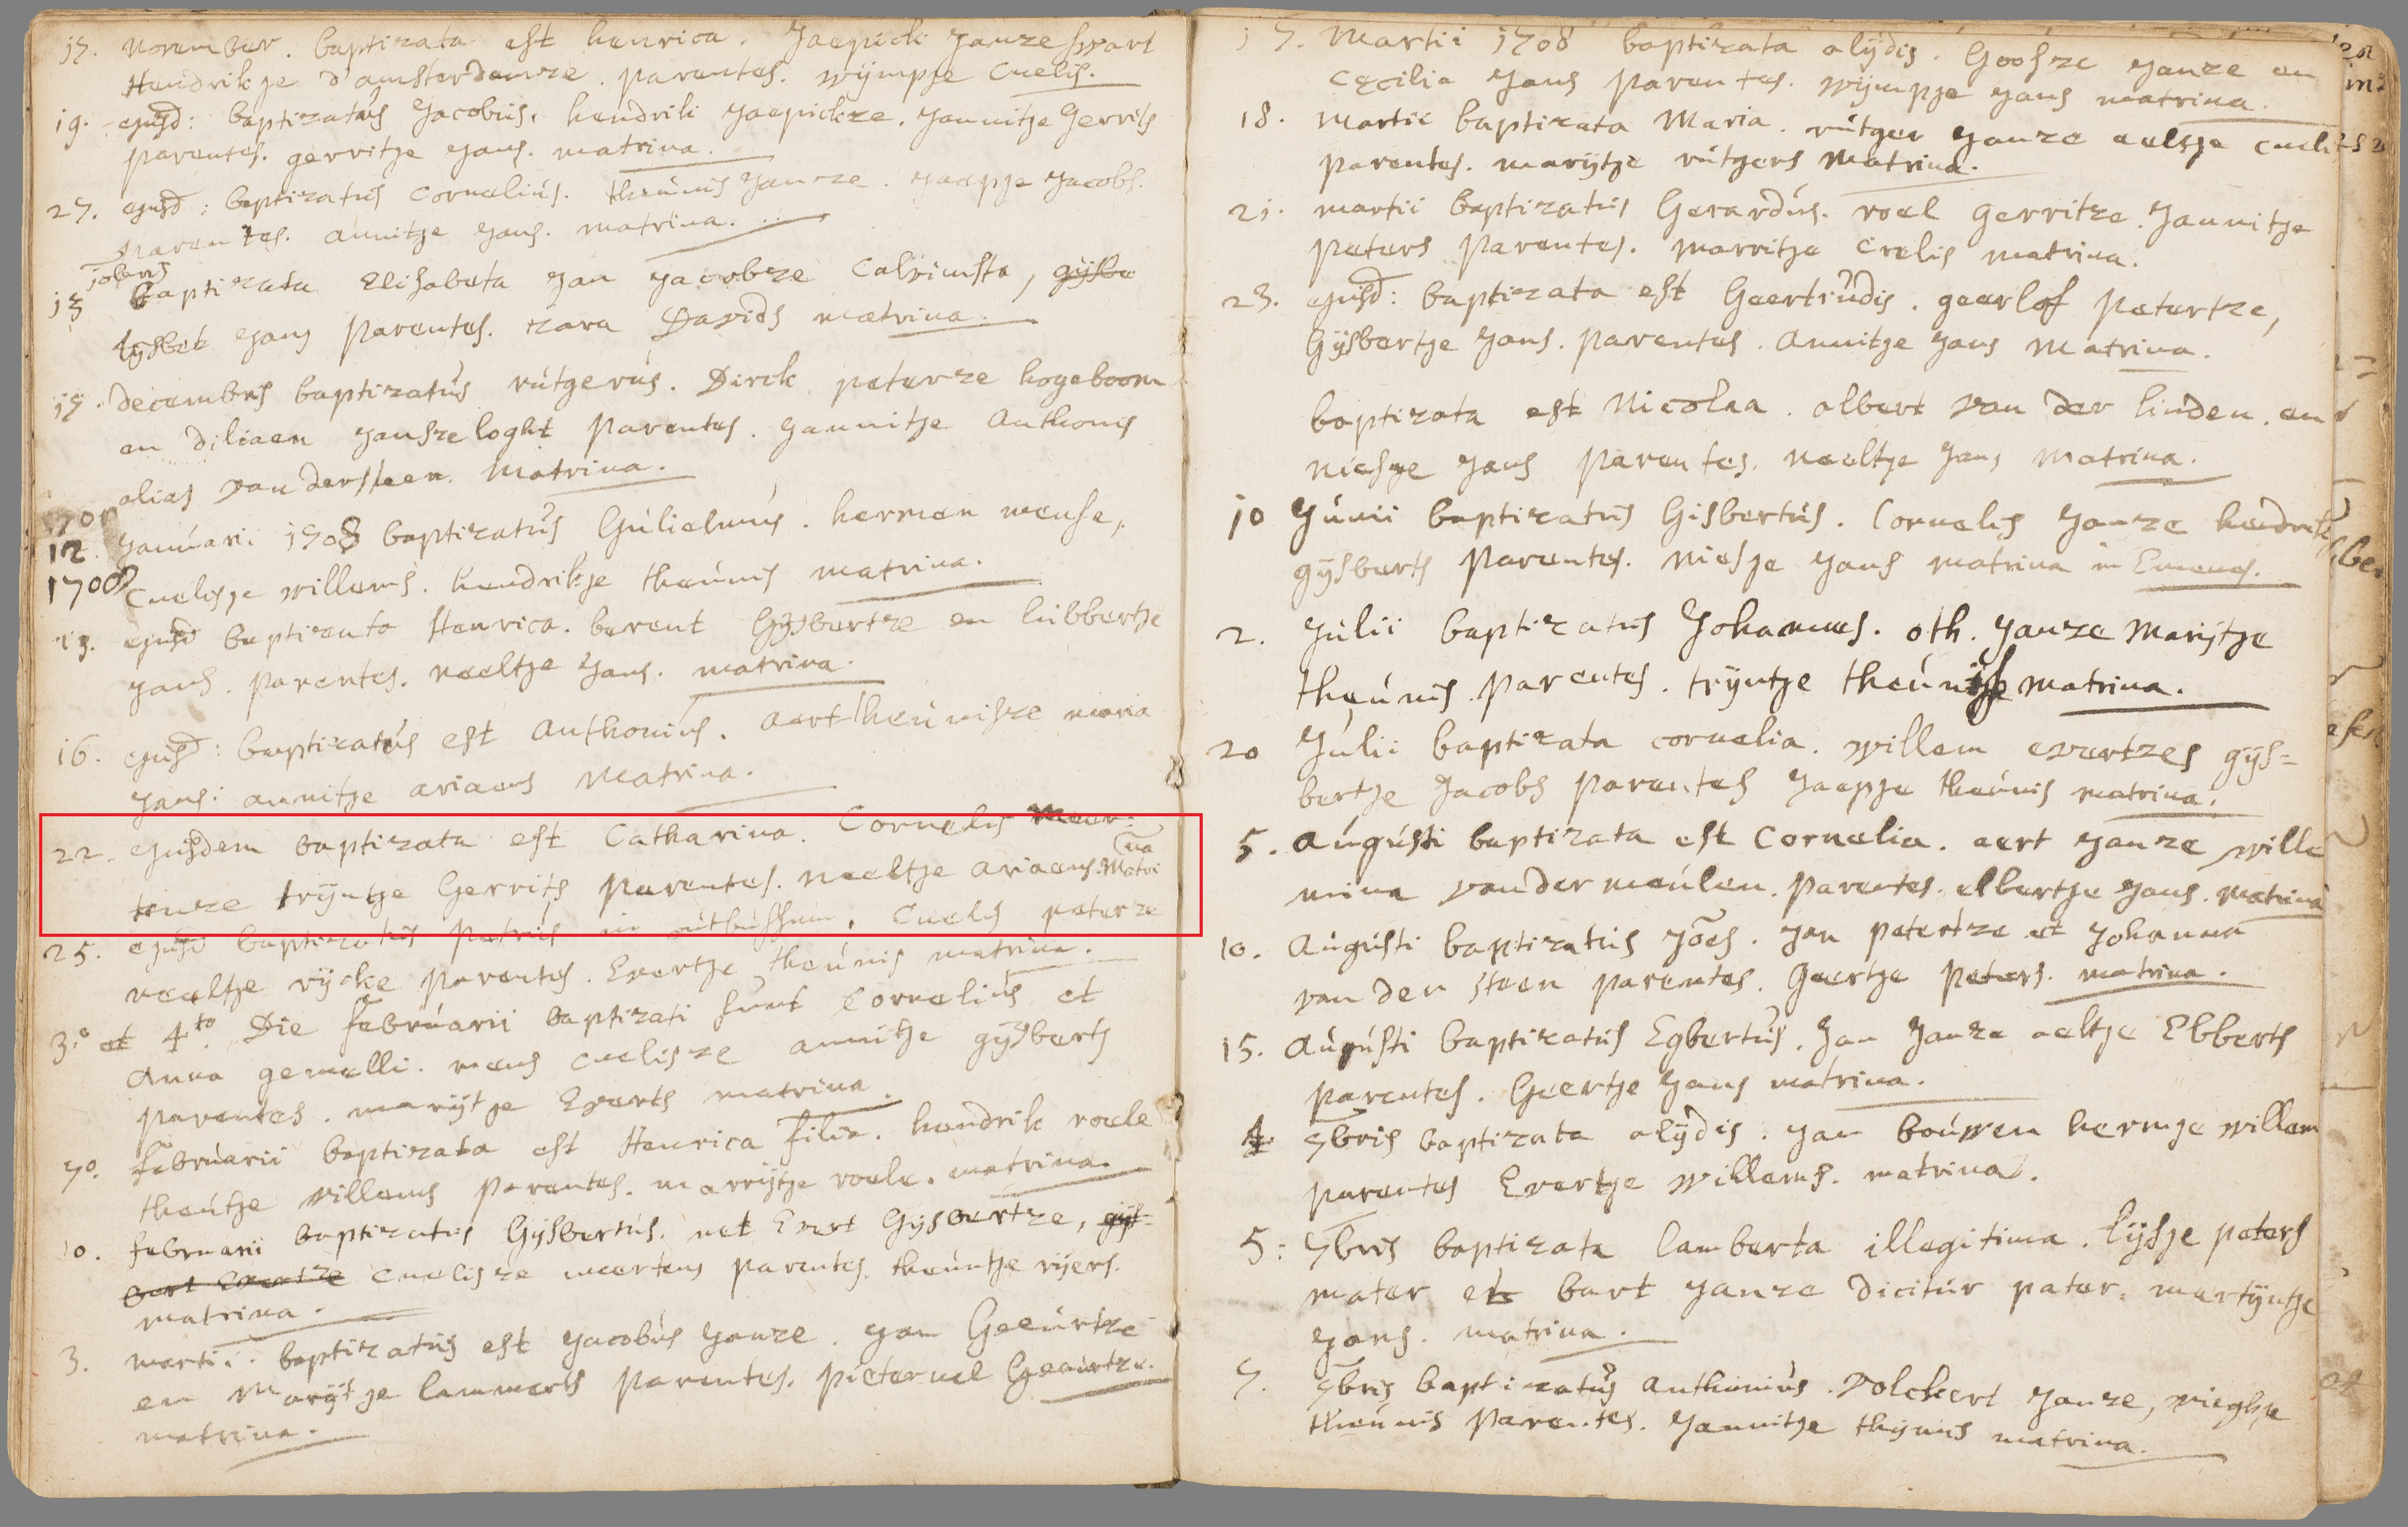 17. november. baptizata est henrica. Jaepick Janze swart
Hendrikje d'amsterdamze. parentes. wijmpje Cnelis.
19. ejusd: baptizatus Jacobus. hendrik Jaepickze. Jannitje Gerrits
parentes. gerritje Jans. matrina.
27. ejusd: baptizatus Cornelius. theunis Janze. Jaepje Jacobs.
parentes. annitje Jans. matrina.
13 baptizata Elisabeta Jan Jacobze Calvinista,
lijsbet Jans parentes. zara Davids matrina.
decembris baptizatus rutgerus. Dirck peterze hogeboom
en diliaen Janszeloght parentes. Jannitje Anthonis
alias vandersteen. matrina.
12. Januarii 1708 baptizatus Gulielmus. hermen mense,
1708 Cnelisje willems. hendrikje theunis matrina.
13. ejusd baptizata Henrica. berent Gijsbertze en lubbertje
Jans. parentes. neeltje Jans. matrina.
16. ejusd: baptizatus est Anthonius. aert theunisze maria
Jans: annitje ariaens matrina.
22. ejusdem baptizata est Catharina. Cornelis Meer-
tenze trijntje Gerrits parentes. neeltje ariaens. Matri
na
25. ejusd baptizatus petrus in uutbussum. Cnelis peterze
neeltje rijcke parentes. Evertje theunis matrina.
3.o et 4.to Die februarii baptizati sunt Cornelius et
Anna gemelli. meus Cnelisze annitje gijsberts
parentes. marijtje Everts matrina.
februarii baptizata est Henrica filia. hendrik roele
theutje willems parentes. marrijtje roele. matrina.
10. februarii baptizatus Gijsbertus. net Evert Gijsbertze, gijs-
bert Evertze Cnelisze meertens parentes. theuntje rijers.
matrina.
3. martii. baptizatus est Jacobus Janze. Jan Geeurtze
en Marijtje lammerts parentes. pieternel Geeurtze.
matrina.
17. Martii 1708 baptizata alijdis. Goosze Janze en
Cecilia Jans parentes. wijmpje Jans matrina.
18. Martii baptizata Maria. rutger Janze aeltje Cnelis
parentes. marijtje rutgers Matrina.
21. martii baptizatus Gerardus. roel gerritze. Jannitje
peters parentes. marritje Crelis matrina.
23. ejusd: baptizata est Geertrudis. geerlof petertze,
Gijsbertje Jans. parentes. Annitje Jans Matrina.
baptizata est Nicolaa. albert van der linden. en
niesje Jans parentes. neeltje Jans matrina.
10 Junii baptizatus Gisbertus. Cornelis Janze hendrikje
gijsberts parentes. niesje Jans matrina in Emenes.
2. Julii baptizatus Johannes. oth. Janze Marijtje
theunis. parentes. trijntje theunisse matrina.
20 Julii baptizata cornelia. willem evertzes gijs=
bertje Jacobs parentes Jaepje theunis matrina.
5. Augusti baptizata est Cornelia. aert Janze wille
mina vander meulen. parentes. elbertje Jans. matrina
10. Augusti baptizatus Joes. Jan petertze et Johanna
van den steen parentes. Geertje peters. matrina.
15. Augusti baptizatus Egbertus. Jan Janze aeltje Ebberts
parentes. Geertje Jans matrina.
4 7bris baptizata alijdis. Jan bouwen hermje willem
parentes Evertje willems. matrina.
5: 7bris baptizata lamberta illegitima. lijsje peters
mater et bart Janze dicitur pater. mertijntje
Jans. matrina.
7. 7bris baptizatus Anthonius. volckert Janze, wieghje
theunis parentes. Jannitje thijmis matrina.